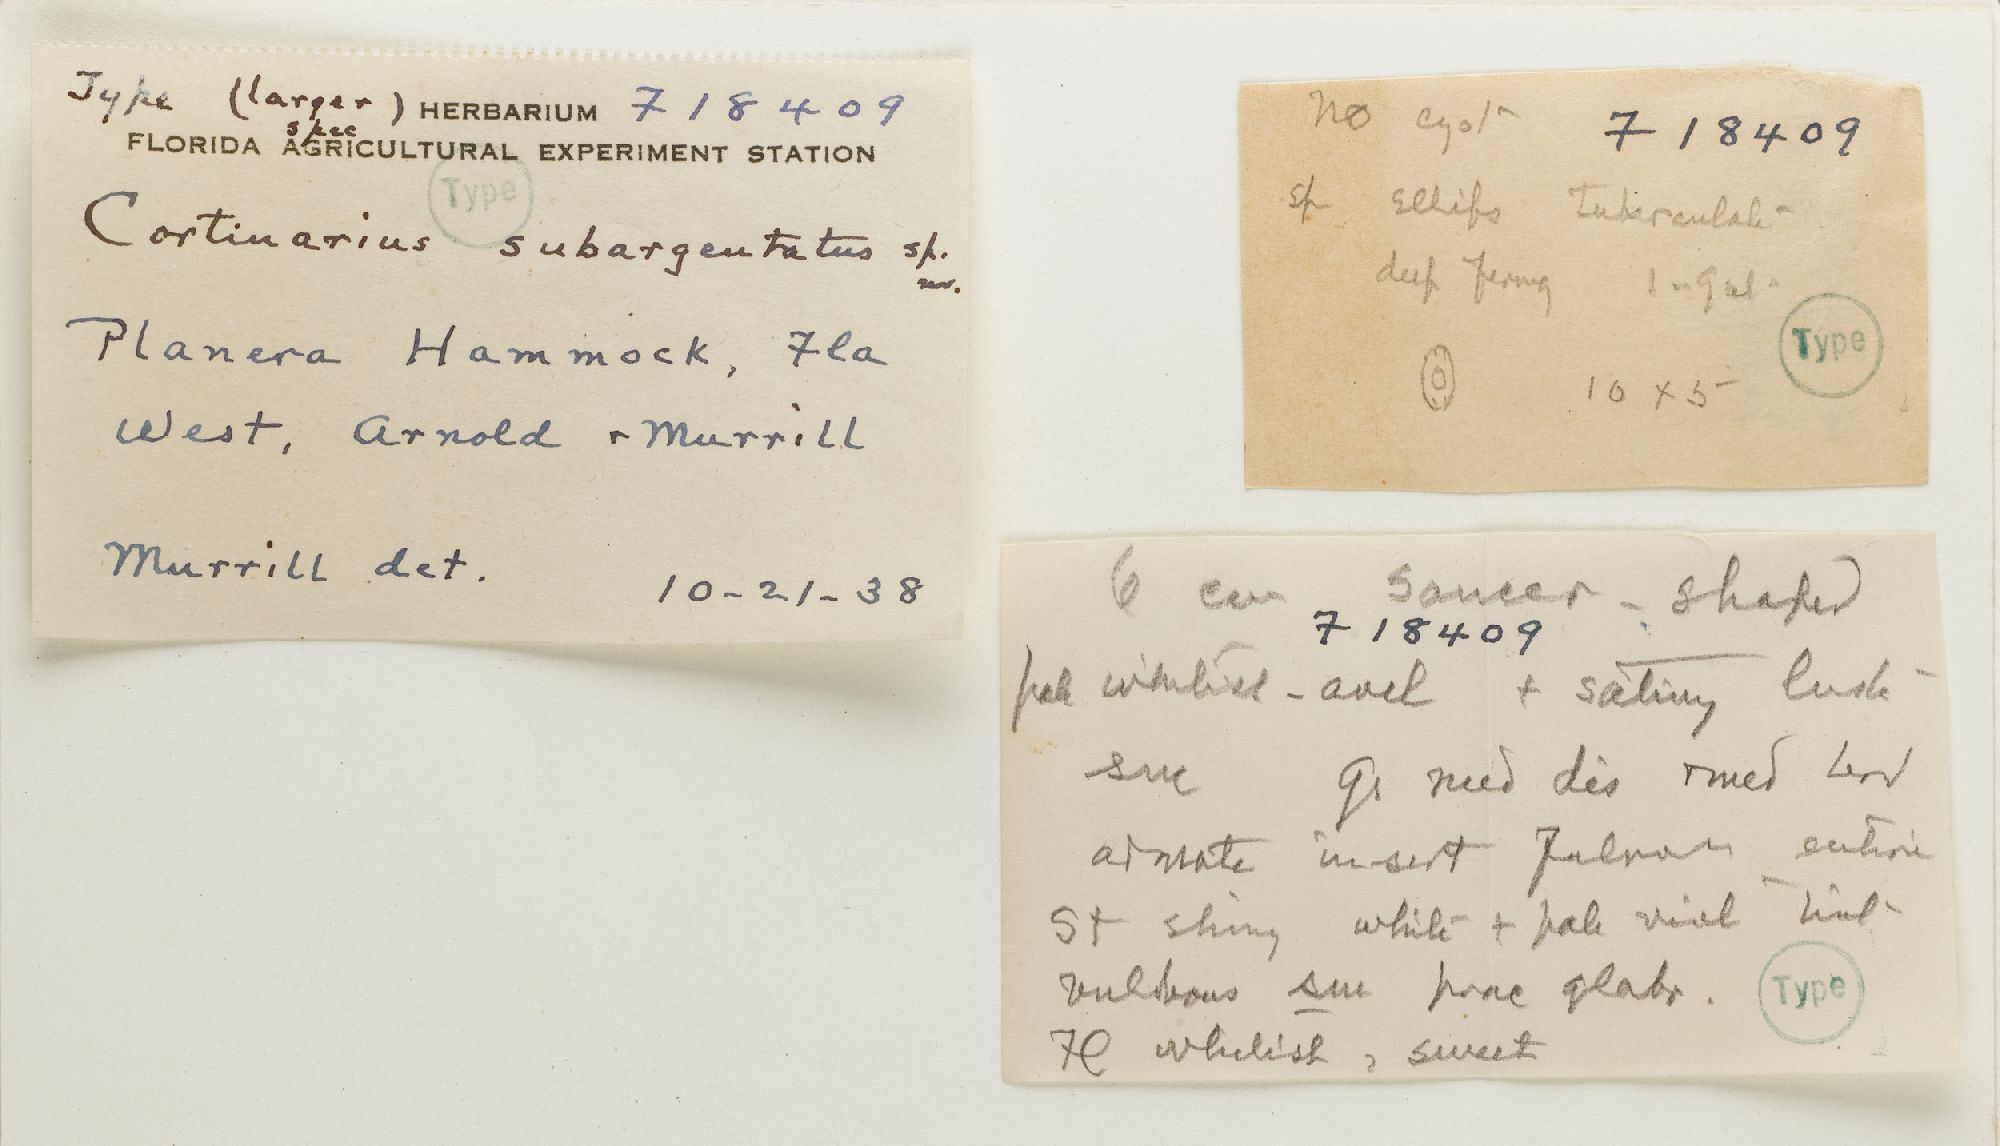 Type (larger) HERBARIUM F 18409
spec
FLORIDA AGRICULTURAL EXPERIMENT STATION
Type
Cortinarius subargentatus sp.
nov.
Planera Hammock, Fla
West, Arnold + Murrill
Murrill det.
10-21-38
No cyst F 18409
sp ellips tuberculate
deep ferrug 1-gut
Type
10 x 5
6 cm saucer-shaped
F 18409
pale whitish-avel + satiny lust
smc G1 med dis + med brd
adnate insert fulvous entire
St shiny white + pale viol tint
bulbous sme prac glabr.
Type
Fl whitish, sweet